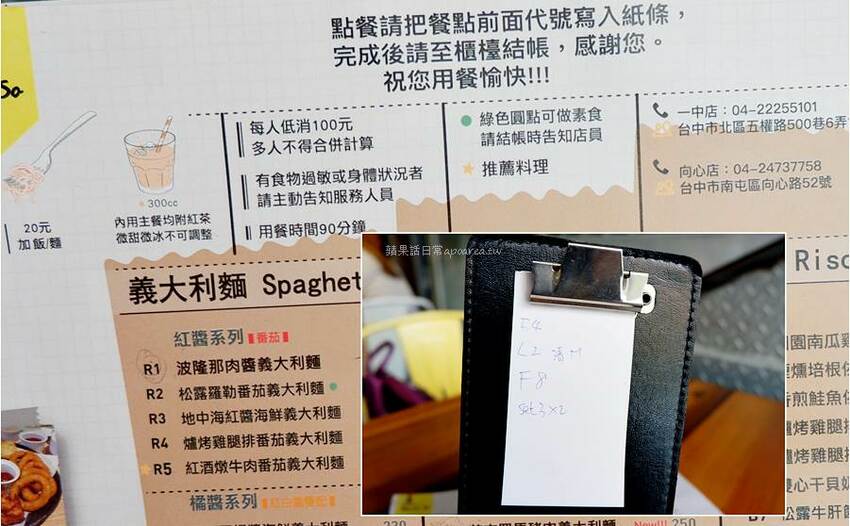 點餐請把餐點前面代號寫入紙條，
完成後請至櫃檯結帳，感謝您。
祝您用餐愉快!!!
20元
加飯/麵
300cc
內用主餐均附紅茶
微甜微冰不可調整
每人低消100元
多人不得合併計算
有食物過敏或身體狀況者
請主動告知服務人員
用餐時間90分鐘
綠色圓點可做素食
請結帳時告知店員
推薦料理
一中店：04-22255101
台中市北區五權路500巷6弄
向心店：04-24737758
台中市南屯區向心路52號
義大利麵 Spaghet
紅醬系列 番茄
R1 波隆那肉醬義大利麵
R2 松露羅勒番茄義大利麵
R3 地中海紅醬海鮮義大利麵
R4 爐烤雞腿排番茄義大利麵
R5 紅酒燉牛肉番茄義大利麵
橘醬系列
蘋果話日常apoarea.tw
I4
L2
F8
set3×2
Riso
園南瓜雞
燻培根
煎鮭魚
爐烤雞腿
爐烤雞腿
心干貝奶
松露牛肝
New!! 250